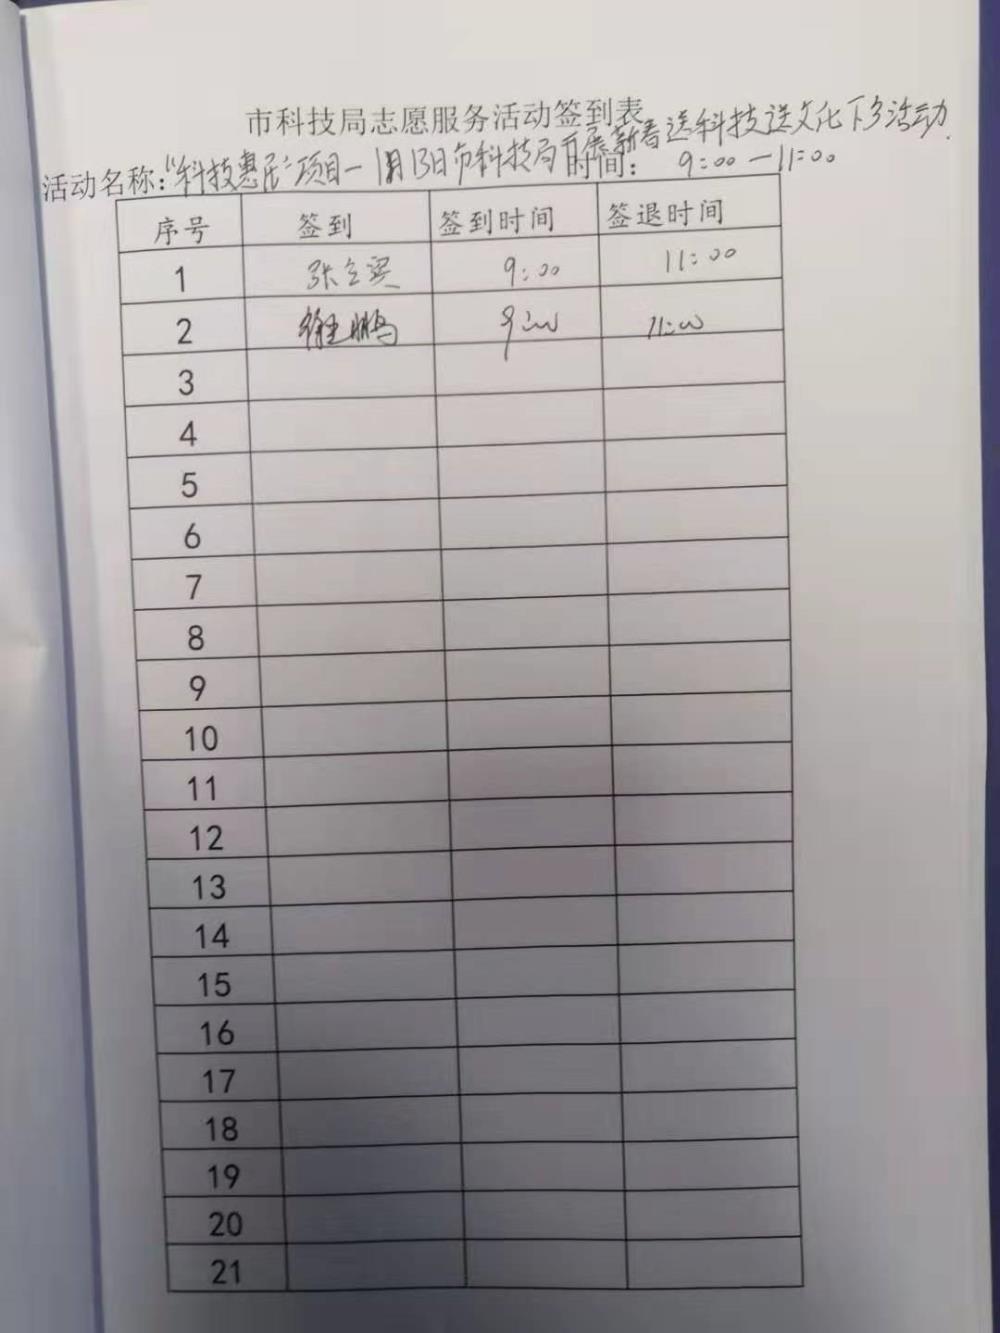 市科技局志愿服务活动签到表
活动名称：“科技惠民”项目一1月13日市科技局开展新春送科技送文化下乡活动 时间： 9:00—11:00
序号 签到 签到时间 签退时间
1 张 9:00 11:00
2 鹏 9:00 11:00
3
4
5
6
7
8
9
10
11
12
13
14
15
16
17
18
19
20
21